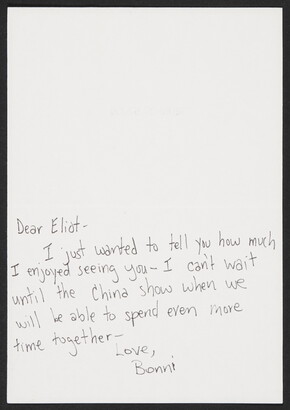 Dear Eliot-
I just wanted to tell you how much
I enjoyed seeing you- I can't wait
until the China show when we
will be able to spend even more
time together-
Love,
Bonni